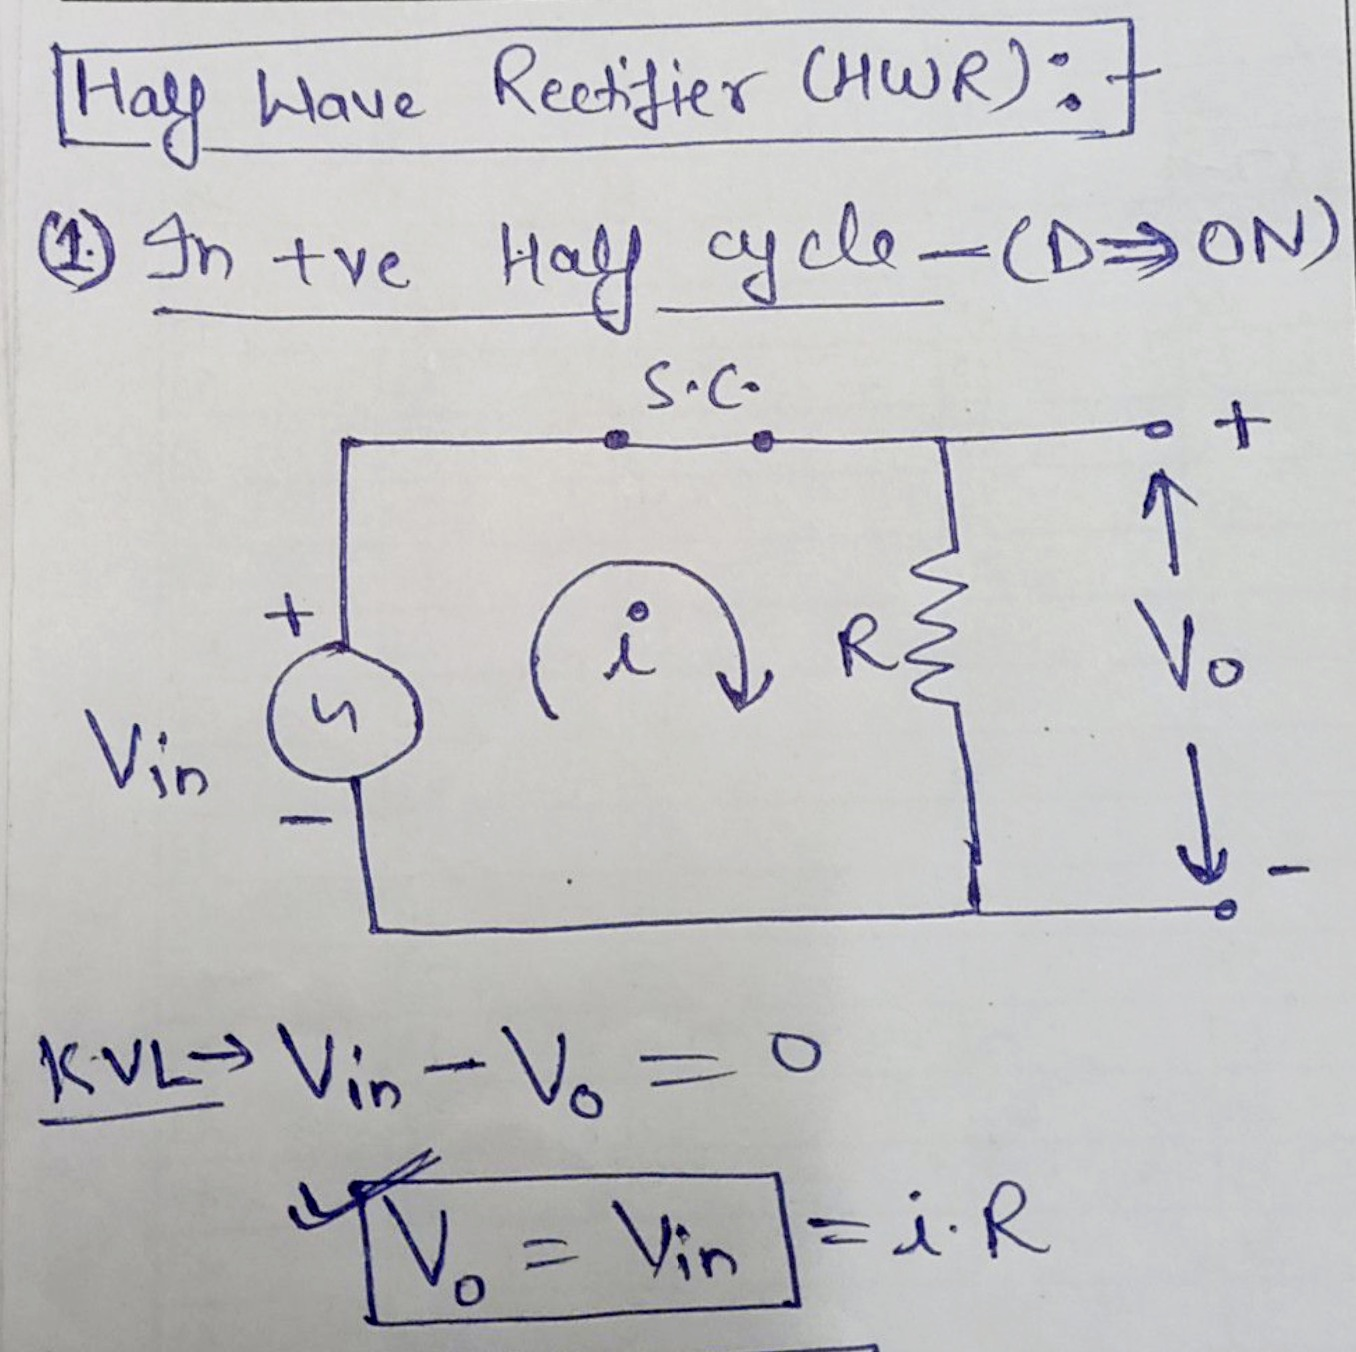 Half Wave Rectifier (HWR):-
(1.) In +ve Half cycle - (D⇒ON)
S.C.
+
+
i
R
Vo
Vin
-
-
KVL→ Vin - Vo = 0
Vo = Vin = i.R